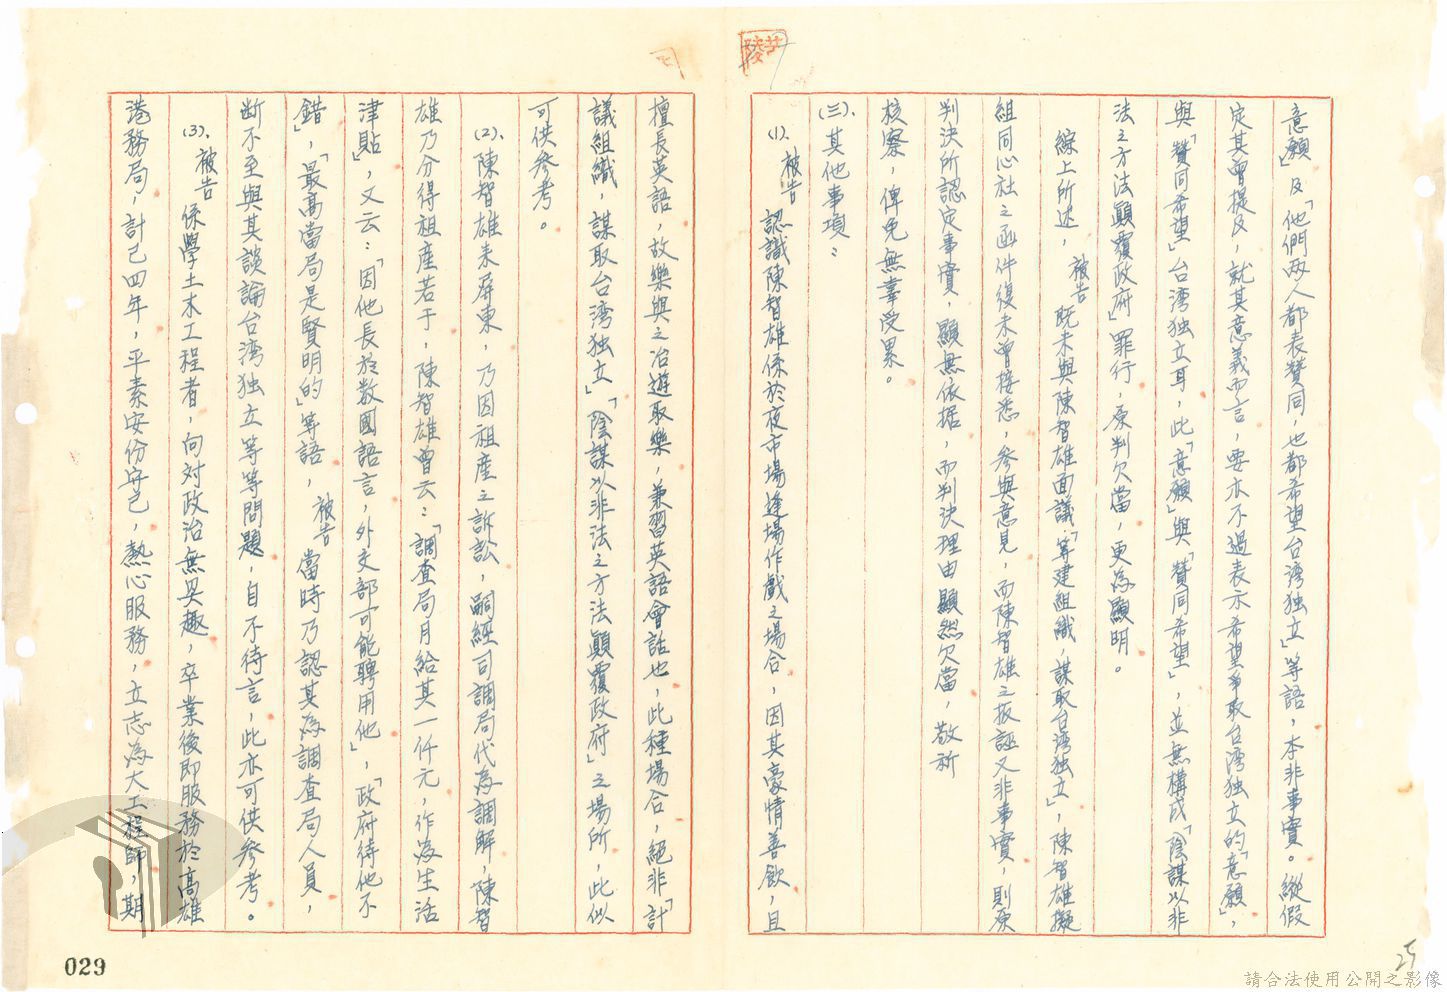 意願」及「他們两人都表贊同，也都希望台湾独立」等語，本非事實。縱假
定其曾提及，就其意義而言，要亦不過表示希望爭取台湾独立的「意願」，
與「贊同希望」台湾独立耳，此「意願」與「贊同希望」，並無構成「陰謀以非
法之方法顛覆政府」罪行，原判欠當，更為顯明。
綜上所述，被告既未與陳智雄面議「筹建組織，謀取台湾独立」，陳智雄擬
組同心社之函件復未曾接悉，参與意見，而陳智雄之扳誣又非事實，則原
判決所認定事實，顯無依据，而判決理由顯然欠當，敬祈
核察，俾免無辜受累。
(三)、其他事項：
(1)、被告認識陳智雄係於夜市場逢場作戲之場合，因其豪情善飲，且
擅長英語，故樂與之冶遊取樂，兼習英語會話也，此種場合，絕非「計
議組織，謀取台湾独立」「陰謀以非法之方法顛覆政府」之場所，此似
可供参考。
(2)、陳智雄来屏東，乃因祖産之訴訟，嗣經司調局代為調解，陳智
雄乃分得祖産若干，陳智雄曾云：「調查局月給其一仟元，作為生活
津貼」，又云：「因他長於数國語言，外交部可能聘用他」，「政府待他不
錯」，「最高當局是賢明的」等語，被告當時乃認其為調查局人員，
断不至與其談論台湾独立等等問題，自不待言，此亦可供参考。
(3)、被告係學土木工程者，向对政治無興趣，卒業後即服務於高雄
港務局，計已四年，平素安份守己，熱心服務，立志為大工程師，期
029
25
請合法使用公開之影像